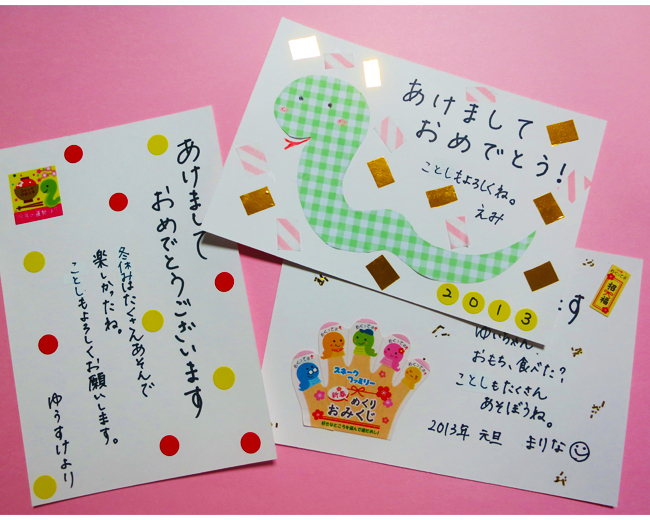 あけまして
おめでとうございます
冬休みはたくさんあそんで
楽しかったね。
ことしもよろしくお願いします。
ゆうすけより
あけまして
おめでとう!
ことしもよろしくね。
えみ
2013
福
福
ます
ゆいちゃん、
おもち、食べた?
ことしもたくさん
あそぼうね。
2013年 元旦 まりな
スネーク
ファミリー
新春
めくり
おみくじ